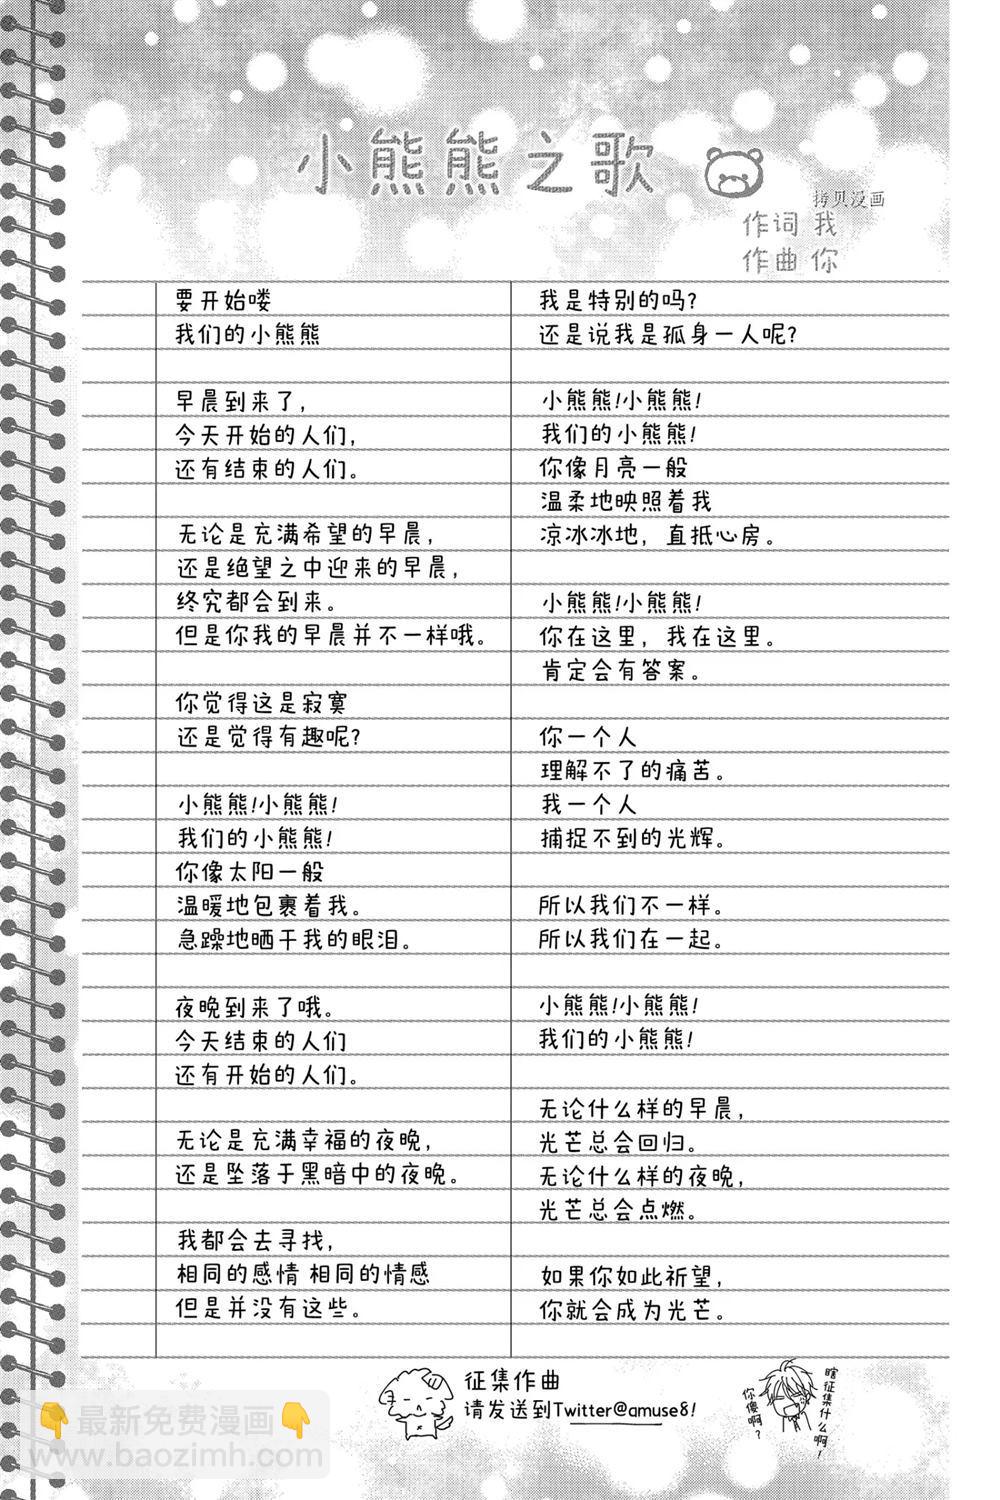 小熊熊之歌
拷贝漫画
作词 我
作曲 你
要开始喽
我们的小熊熊
早晨到来了,
今天开始的人们,
还有结束的人们。
无论是充满希望的早晨,
还是绝望之中迎来的早晨,
终究都会到来。
但是你我的早晨并不一样哦。
你觉得这是寂寞
还是觉得有趣呢?
小熊熊!小熊熊!
我们的小熊熊!
你像太阳一般
温暖地包裹着我。
急躁地晒干我的眼泪。
夜晚到来了哦。
今天结束的人们
还有开始的人们。
无论是充满幸福的夜晚,
还是坠落于黑暗中的夜晚。
我都会去寻找,
相同的感情 相同的情感
但是并没有这些。
我是特别的吗?
还是说我是孤身一人呢?
小熊熊!小熊熊!
我们的小熊熊!
你像月亮一般
温柔地映照着我
凉冰冰地,直抵心房。
小熊熊!小熊熊!
你在这里,我在这里。
肯定会有答案。
你一个人
理解不了的痛苦。
我一个人
捕捉不到的光辉。
所以我们不一样。
所以我们在一起。
小熊熊!小熊熊!
我们的小熊熊!
无论什么样的早晨,
光芒总会回归。
无论什么样的夜晚,
光芒总会点燃。
如果你如此祈望,
你就会成为光芒。
征集作曲
请发送到Twitter@amuse8!
瞎征集什么啊!
你傻啊?
👇最新免费漫画👇
www.baozimh.com